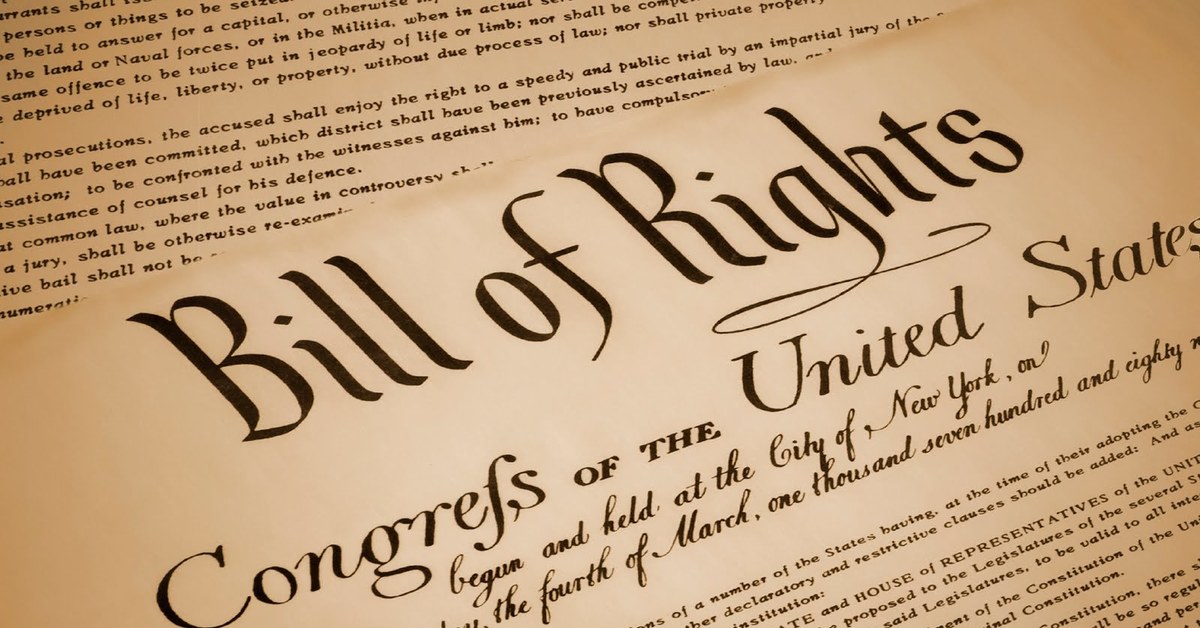 persons or things to be
be held to answer for a capital, or otherwise
the land or Naval forces, or in the Militia, when in actual
same offence to be twice put in jeopardy of life or limb; nor shall be
deprived of life, liberty, or property, without due process of law; nor shall private property
prosecutions, the accused shall enjoy the right to a speedy and public trial by an impartial jury of
have been committed, which district shall have been previously ascertained by law,
to be confronted with the witnesses against him; to have
assistance of counsel for his defence.
common law, where the value in controversy
a jury, shall be otherwise
bail shall not be
Bill of Rights
Congreſs OF THE United States
begun and held at the City of New York, on
the fourth of March, one thousand seven hundred and eighty
of a number of the States having, at the time of their adopting the
declaratory and restrictive clauses should be added: And as
and HOUSE of REPRESENTATIVES of the
proposed to the Legislatures of the several
said Legislatures, to be valid to all
of the Constitution of the
Constitution.
Constitution, there
be so